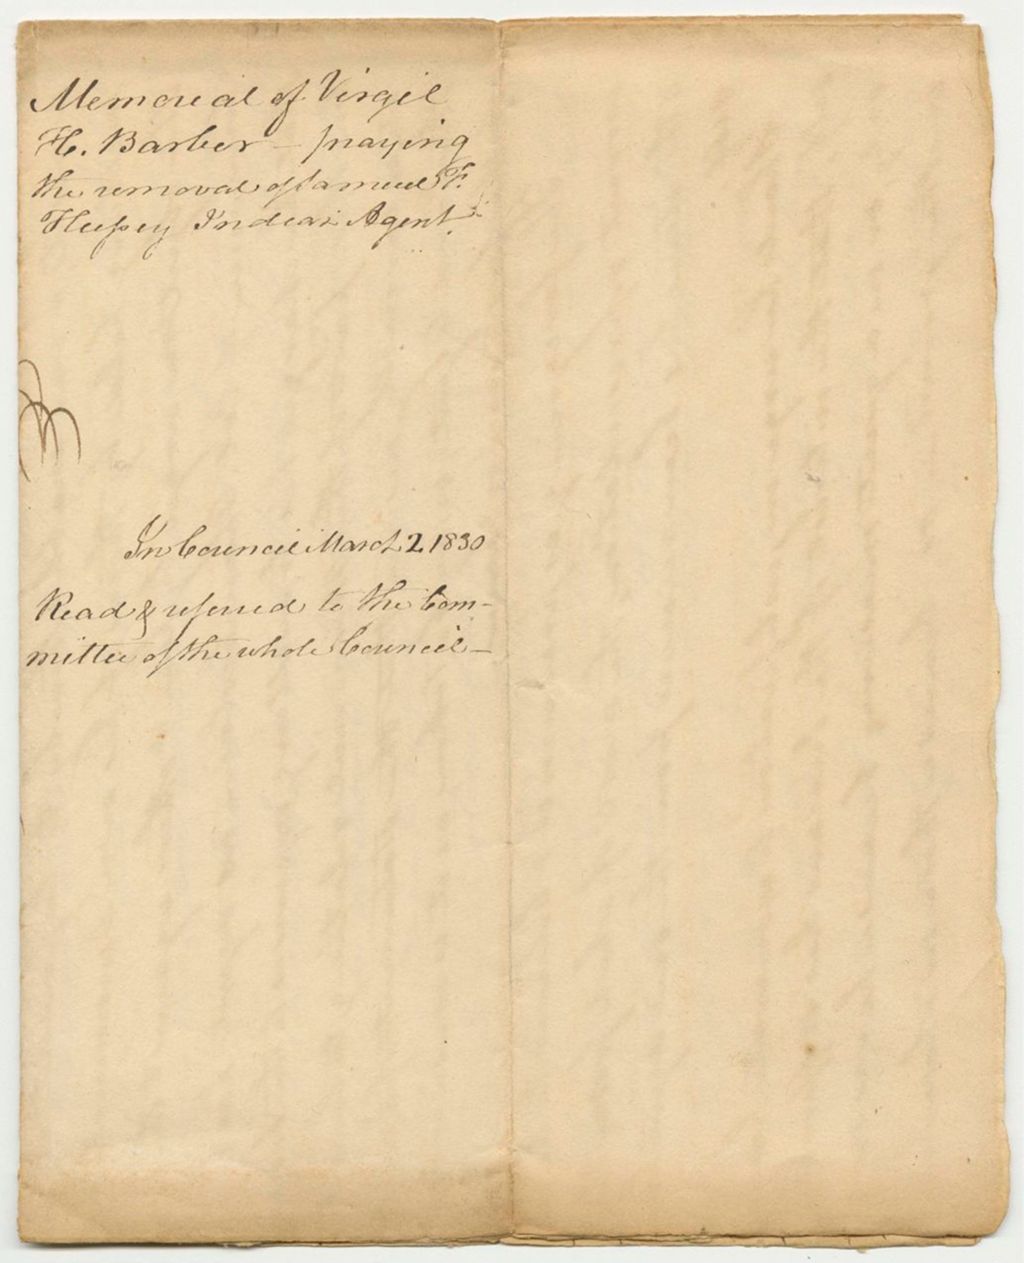 Memorial of Virgil
H. Barber – praying
the removal of Samuel F.
Hussey Indian Agent.
In Council March 2 1830
Read & referred to the Com-
mittee of the whole Council –